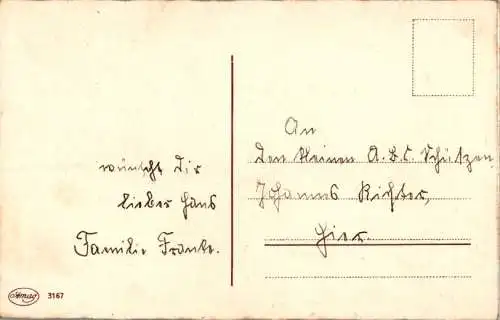 wünscht Dir
lieber Hans
Familie Franke.
An
den kleinen A.B.C. Schützen
Johannes Richter,
Hier.
Amag
3167